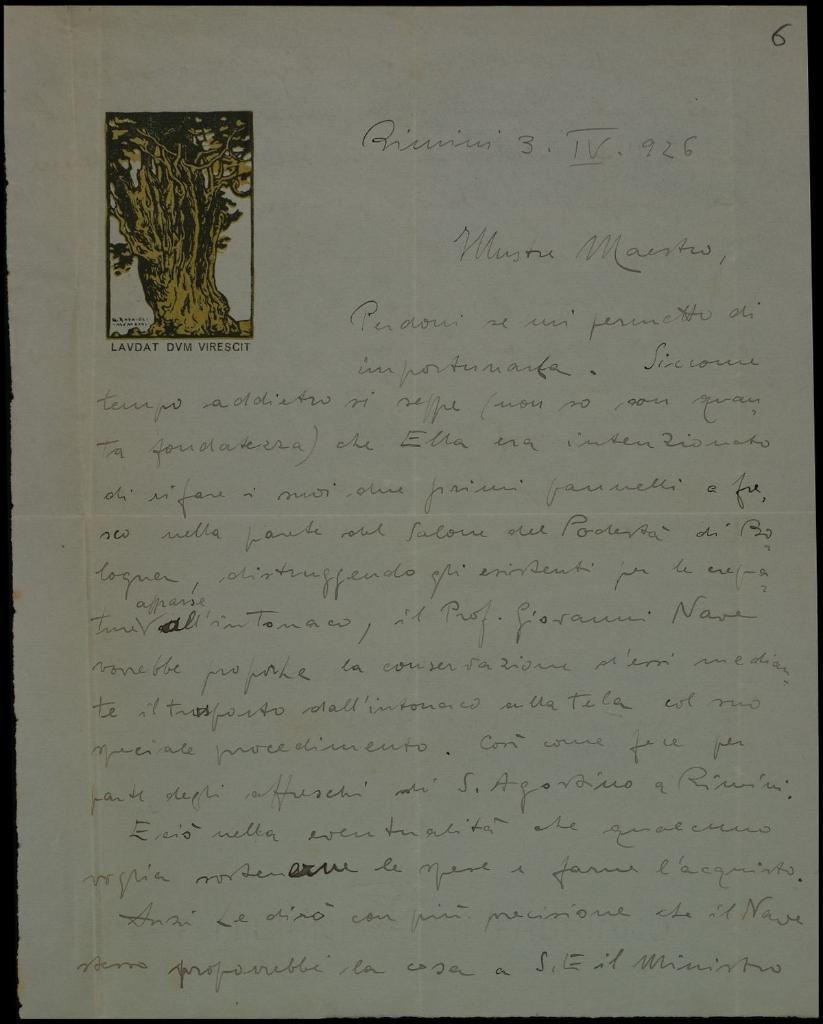 6
Rimini 3. IV. 926
LAVDAT DVM VIRESCIT
Illustre Maestro,
Perdoni se mi permetto di
importunarla. Siccome
tempo addietro si seppe (non so con quan-
ta fondatezza) che Ella era intenzionato
di rifare i suoi due primi pannelli a fre-
sco nella parete del Salone del Podestà di Bo-
logna, distruggendo gli esistenti per le crepa-
ture apparse all'intonaco, il Prof. Giovanni Nave
vorrebbe proporre la conservazione d'essi median-
te il trasporto dall'intonaco alla tela col suo
speciale procedimento. Così come fece per
parte degli affreschi di S. Agostino a Rimini.
E ciò nella eventualità che qualcuno
voglia sostenerne le spese e farne l'acquisto.
Anzi Le dirò con più precisione che il Nave
stesso proporrebbe la cosa a S.E il Ministro